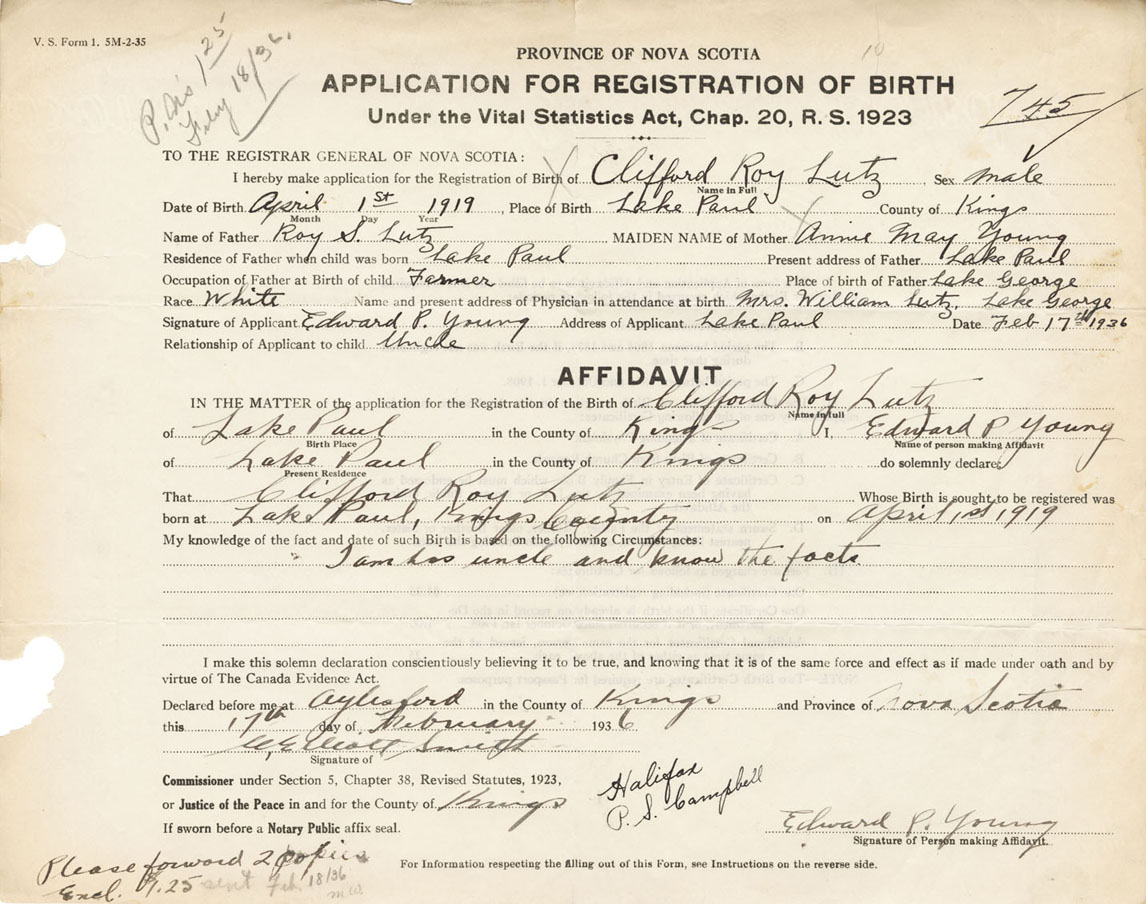 V. S. Form 1. 5M-2-35
1 25
18/36.
10
PROVINCE OF NOVA SCOTIA
APPLICATION FOR REGISTRATION OF BIRTH
745
Under the Vital Statistics Act, Chap. 20, R. S. 1923
TO THE REGISTRAR GENERAL OF NOVA SCOTIA:
I hereby make application for the Registration of Birth of Clifford Roy Lutz, Sex male
Name in Full
Date of Birth April 1st 1919, Place of Birth Lake Paul County of Kings
Month Day Year
Name of Father Roy S. Lutz MAIDEN NAME of Mother Annie May Young
Residence of Father when child was born Lake Paul Present address of Father Lake Paul
Occupation of Father at Birth of child Farmer Place of birth of Father Lake George
Race White Name and present address of Physician in attendance at birth Mrs. William Lutz, Lake George
Signature of Applicant Edward P. Young Address of Applicant Lake Paul Date Feb 17th 1936
Relationship of Applicant to child Uncle
AFFIDAVIT
IN THE MATTER of the application for the Registration of the Birth of Clifford Roy Lutz
Name in full
of Lake Paul in the County of Kings I, Edward P Young
Birth Place Name of person making Affidavit
of Lake Paul in the County of Kings do solemnly declare
Present Residence
That Clifford Roy Lutz Whose Birth is sought to be registered was
born at Lake Paul, Kings County on April 1st 1919
My knowledge of the fact and date of such Birth is based on the following Circumstances:
I am his uncle and know the facts.
I make this solemn declaration conscientiously believing it to be true, and knowing that it is of the same force and effect as if made under oath and by
virtue of The Canada Evidence Act.
Declared before me at Aylesford in the County of Kings and Province of Nova Scotia
this 17th day of February 1936
Elliott Smith
Signature of
Commissioner under Section 5, Chapter 38, Revised Statutes, 1923,
or Justice of the Peace in and for the County of Kings
Halifax
P. S. Campbell
If sworn before a Notary Public affix seal.
Edward P. Young
Signature of Person making Affidavit.
Please forward 2 copies
Encl. 1.25 sent Feb. 18/36
For Information respecting the filling out of this Form, see Instructions on the reverse side.